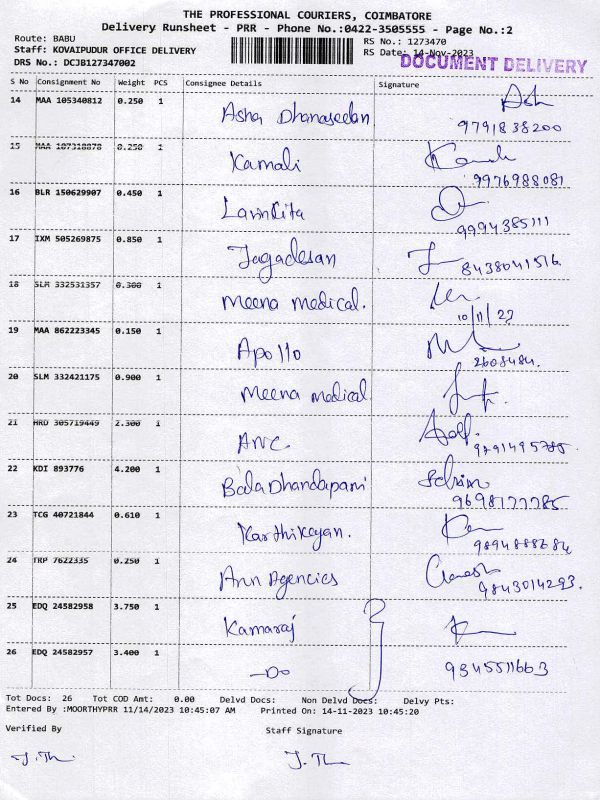 THE PROFESSIONAL COURIERS, COIMBATORE
Delivery Runsheet - PRR - Phone No.:0422-3505555 - Page No.:2
Route: BABU
Staff: KOVAIPUDUR OFFICE DELIVERY
RS No.: 1273470
RS Date: 14-Nov-2023
DRS No.: DCJB127347002
DOCUMENT DELIVERY
S No Consignment No Weight PCS Consignee Details Signature
14 MAA 105340812 0.250 1 Asha Dhanaseelan 9791838200
15 MAA 107318878 0.250 1 Kamali 9976988081
16 BLR 150629907 0.450 1 Lavinkita 9994385111
17 IXM 505269875 0.850 1 Jagadesan 8438041516
18 SLM 332531357 0.300 1 Meena medical. 10/11/23
19 MAA 862223345 0.150 1 Apollo 2608484.
20 SLM 332421175 0.900 1 Meena medical
21 HRD 305719449 2.300 1 ANC. 9791495785.
22 KDI 893776 4.200 1 Bala Dhandapani 9698177785
23 TCG 40721844 0.610 1 Karthikeyan. 9894888684
24 TRP 7622335 0.250 1 Ann Agencies Ganesh 9843014293.
25 EDQ 24582958 3.750 1 Kamaraj
26 EDQ 24582957 3.400 1 —Do 9345511663
Tot Docs: 26 Tot COD Amt: 0.00 Delvd Docs: Non Delvd Docs: Delvy Pts:
Entered By :MOORTHYPRR 11/14/2023 10:45:07 AM Printed On: 14-11-2023 10:45:20
Verified By Staff Signature